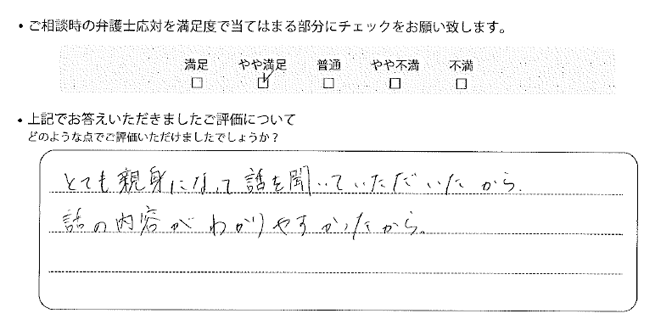 ・ご相談時の弁護士応対を満足度で当てはまる部分にチェックをお願い致します。
満足 やや満足 普通 やや不満 不満
・上記でお答えいただきましたご評価について
どのような点でご評価いただけましたでしょうか？
とても親身になって話を聞いていただいたから.
話の内容がわかりやすかったから。